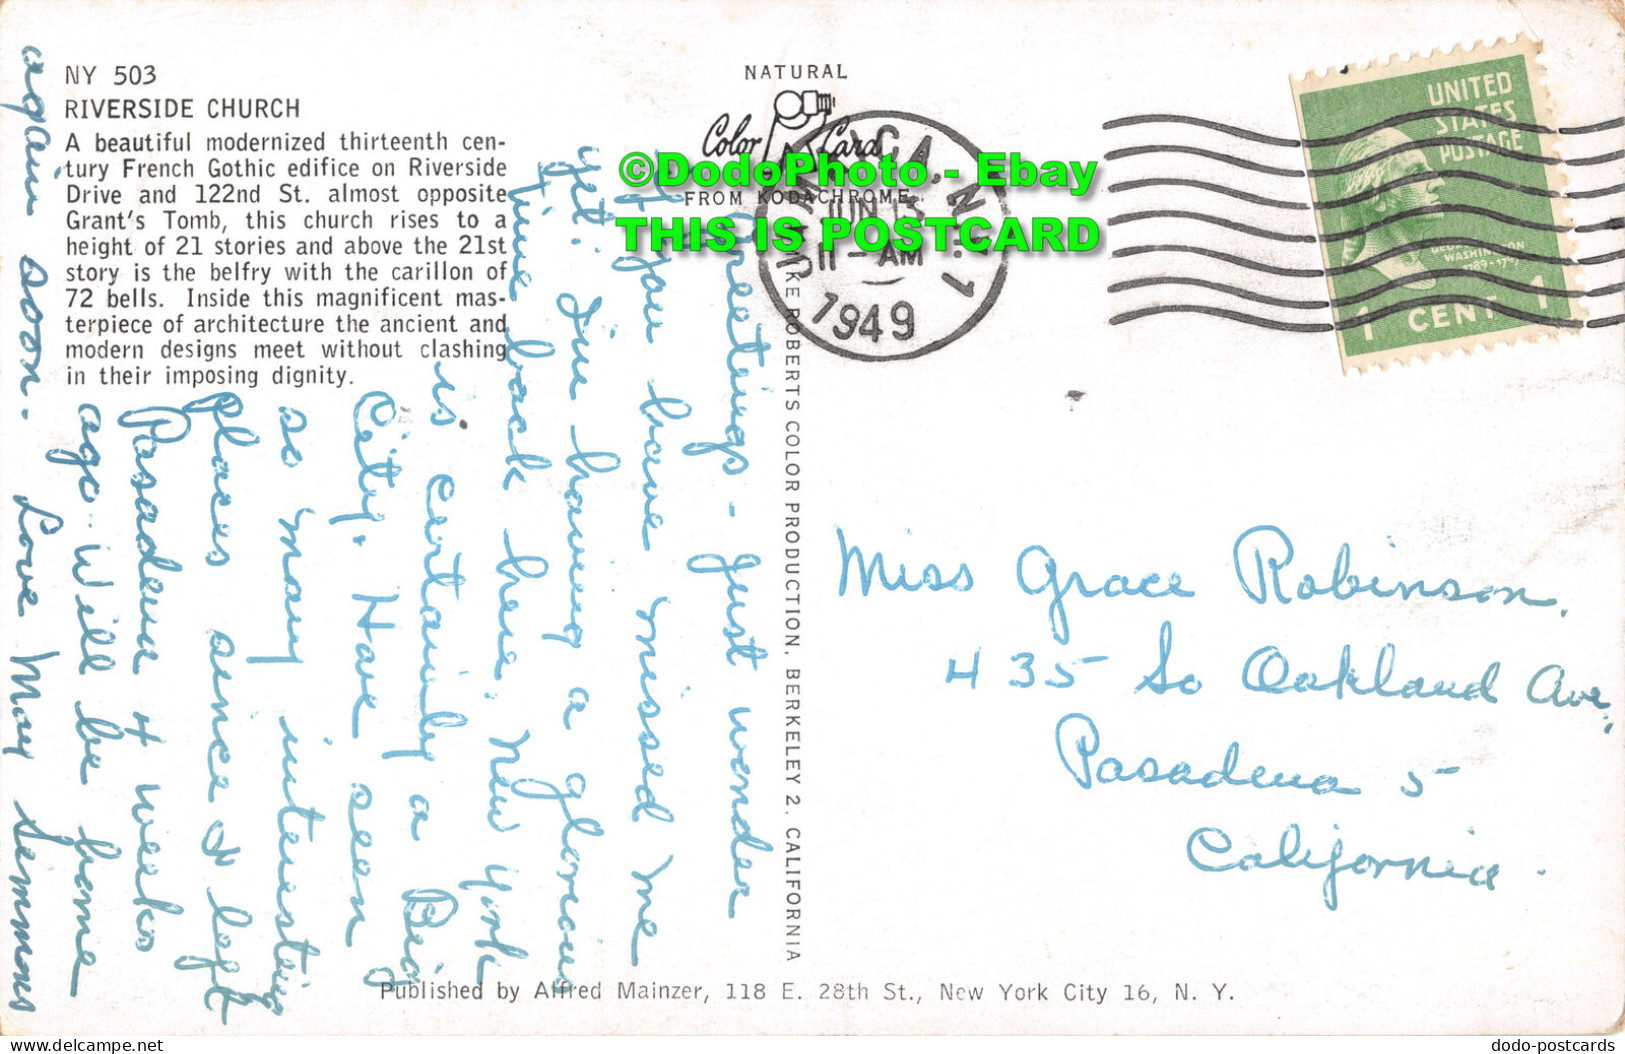 NY 503
RIVERSIDE CHURCH
A beautiful modernized thirteenth cen-
tury French Gothic edifice on Riverside
Drive and 122nd St. almost opposite
Grant's Tomb, this church rises to a
height of 21 stories and above the 21st
story is the belfry with the carillon of
72 bells. Inside this magnificent mas-
terpiece of architecture the ancient and
modern designs meet without clashing
in their imposing dignity.
NATURAL
Color Card
FROM KODACHROME
©DodoPhoto - Ebay
THIS IS POSTCARD
JAMAICA, N.Y. 1
JUN 13
11 - AM
1949
UNITED
STATES
POSTAGE
GEORGE
WASHINGTON
1789-1797
1 CENT 1
Greetings - Just wonder
if you have missed me
yet. I'm having a glorious
time back here. New York
is certainly a Big
City. Have seen
so many interesting
places since I left
Pasadena 4 weeks
ago. Will be home
again soon. Love Mary Simmons
MIKE ROBERTS COLOR PRODUCTION, BERKELEY 2, CALIFORNIA
Miss Grace Robinson.
435 So Oakland Ave,
Pasadena 5
California.
Published by Alfred Mainzer, 118 E. 28th St., New York City 16, N. Y.
www.delcampe.net
dodo-postcards